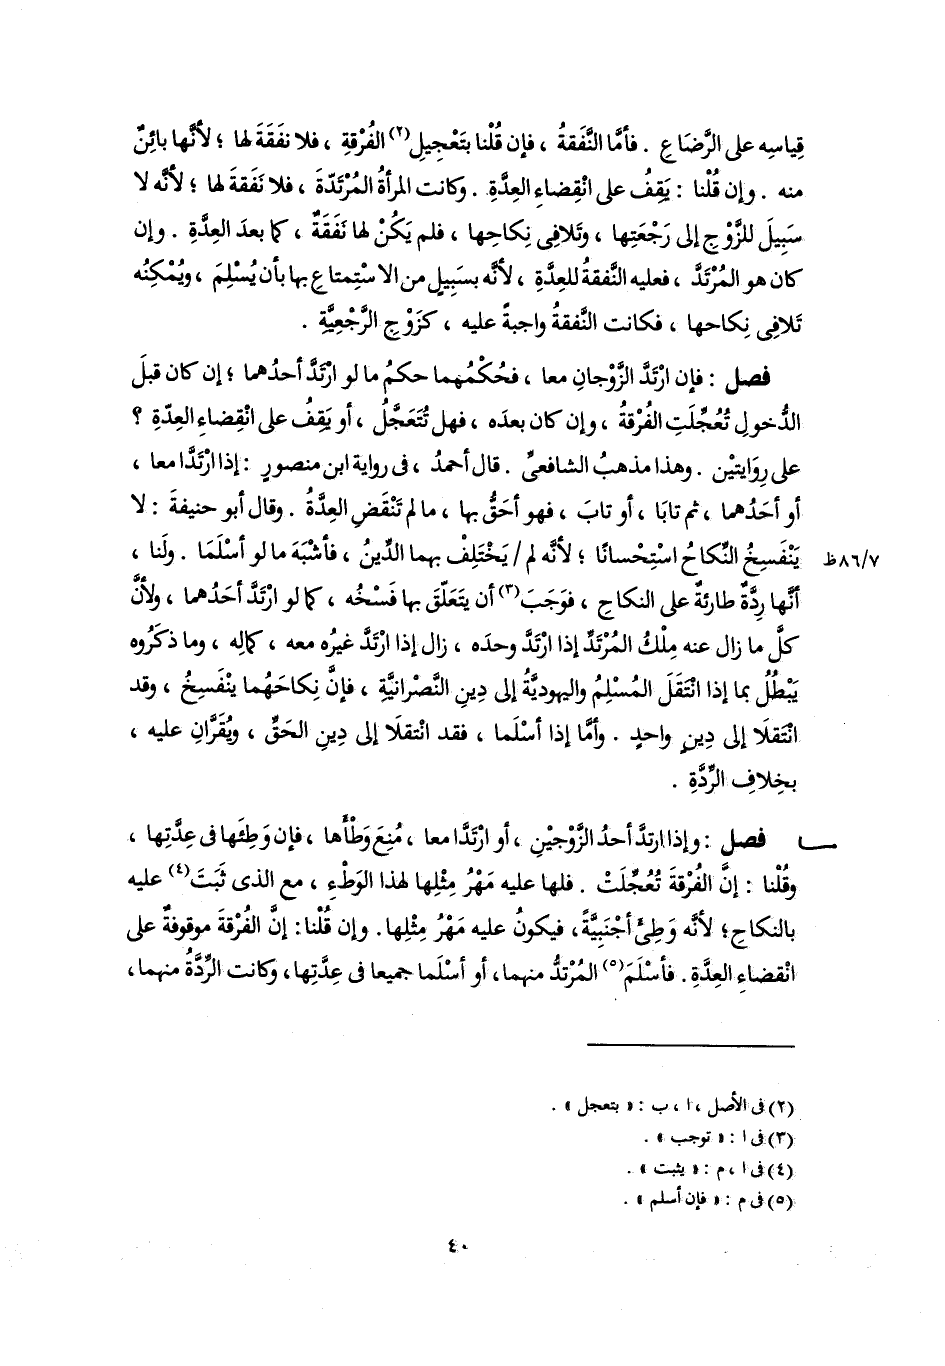 قِياسِه على الرَّضاعِ . فأمَّا النَّفَقةُ ، فإن قُلْنا بتَعْجِيلِ(٢) الفُرْقةِ ، فلا نفَقَةَ لها ؛ لأنَّها بائِنٌ
منه . وإن قُلْنا : يَقِفُ على انْقِضاءِ العِدَّةِ . وكانت المرأةُ المُرْتَدّةَ ، فلا نَفَقةَ لها ؛ لأنَّه لا
سَبِيلَ للزَّوْجِ إلى رَجْعَتِها ، وتَلافِى نِكاحِها ، فلم يَكُنْ لها نَفَقَةٌ ، كما بعدَ العِدَّةِ . وإن
كان هو المُرْتَدَّ ، فعليه النَّفقةُ للعِدَّةِ ، لأنَّه بسَبِيلٍ من الاسْتِمتاعِ بها بأن يُسْلِمَ ، ويُمْكِنُه
تَلافِى نِكاحِها ، فكانت النَّفقةُ واجبةً عليه ، كزَوْجِ الرَّجْعِيَّةِ .
فصل : فإن ارْتَدَّ الزَّوْجانِ معا ، فحُكْمُهما حكمُ ما لو ارْتَدَّ أحدُهما ؛ إن كان قبلَ
الدُّخولِ تُعُجِّلَتِ الفُرْقةُ ، وإن كان بعدَه ، فهل تُتَعَجَّلُ ، أو يَقِفُ على انْقِضاءِ العِدّةِ ؟
على رِوَايتيْن . وهذا مذهبُ الشافعىِّ . قال أحمدُ ، فى رواية ابن منصورٍ : إذا ارْتَدَّا معا ،
أو أحَدُهما ، ثم تابَا ، أو تابَ ، فهو أحَقُّ بها ، ما لم تَنْقَضِ العِدَّةُ . وقال أبو حنيفةَ : لا
يَنْفَسِخُ النِّكاحُ اسْتِحْسانًا ؛ لأنَّه لم / يَخْتَلِفْ بهما الدِّينُ ، فأشْبَهَ ما لو أسْلَمَا . ولَنا ، ٨٦/٧ظ
أنَّها رِدَّةٌ طارئةٌ على النكاحِ ، فوَجَبَ(٣) أن يتَعَلَّقَ بها فَسْخُه ، كما لو ارْتَدَّ أحَدُهما ، ولأنَّ
كلَّ ما زال عنه مِلْكُ المُرْتَدِّ إذا ارْتَدَّ وحدَه ، زال إذا ارْتَدَّ غيرُه معه ، كمالِه ، وما ذكَرُوه
يَبْطُلُ بما إذا انْتَقَلَ المُسْلِمُ واليهوديَّةُ إلى دِينِ النَّصْرانيَّةِ ، فإنَّ نِكاحَهُما ينْفَسِخُ ، وقد
انْتَقلَا إلى دِينٍ واحدٍ . وأمَّا إذا أسْلَما ، فقد انْتقلَا إلى دِينِ الحَقِّ ، ويُقَرَّانِ عليه ،
بخِلافِ الرِّدَّةِ .
فصل : وإذا ارتدَّ أحدُ الزَّوْجيْنِ ، أو ارْتَدَّا معا ، مُنِعَ وَطْأَها ، فإن وَطِئَها فى عِدَّتِها ،
وقُلْنا : إنَّ الفُرْقةَ تُعُجِّلَتْ . فلها عليه مَهْرُ مِثْلِها لهذا الوَطْءِ ، مع الذى ثَبَتَ(٤) عليه
بالنكاحِ؛ لأنَّه وَطِئَ أجْنَبِيَّةً، فيكونُ عليه مَهْرُ مِثْلِها. وإن قُلْنا: إنَّ الفُرْقةَ موقوفةٌ على
انْقضاءِ العِدَّةِ. فأسْلَمَ(٥) المُرْتدُّ منهما، أو أسْلَما جميعا فى عِدَّتِها، وكانت الرِّدَّةُ منهما،
(٢) فى الأصل ، ا ، ب : « بتعجل » .
(٣) فى ا : « توجب » .
(٤) فى ا ، م : « يثبت » .
(٥) فى م : « فإن أسلم » .
٤٠